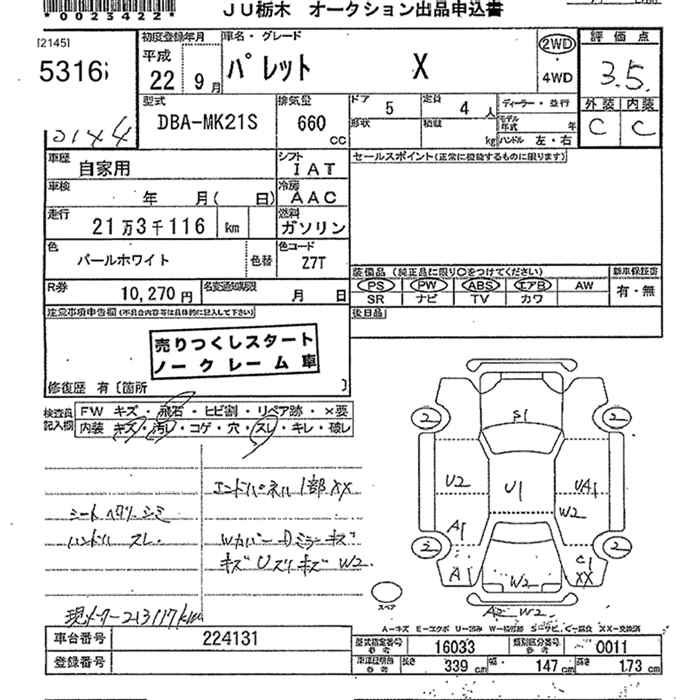 *0023422*
JU栃木 オークション出品申込書
[2145]
5316
2144
初度登録年月
平成
22 9月
車名・グレード
パレット X
2WD
・
4WD
評価点
3.5
外装 内装
C C
型式
DBA-MK21S
排気量
660
CC
ドア 5 定員 4 人
形状 積載 kg
ディーラー・並行
モデル年式 年
ハンドル 左・右
車歴
自家用
シフト
IAT
セールスポイント(正常に機能するものに限ります)
車検
年 月( 日)
冷房
AAC
走行
21万3千116 km
燃料
ガソリン
色
パールホワイト
色替
色コード
Z7T
装備品 (純正品に限り○をつけてください)
新車保証書
PS PW ABS エアB AW
有・無
SR ナビ TV カワ
R券
10,270円
名変通知期限
月 日
後日品
注意事項申告欄(不具合内容等は具体的に記入して下さい)
売りつくしスタート
ノークレーム車
修復歴 有〔箇所 〕
検査員
記入欄
FW キズ・飛石・ヒビ割・リペア跡・×要
内装 キズ・汚レ・コゲ・穴・スレ・キレ・破レ
エンドパネル1部XX
シート ヘタリ シミ
ハンドル スレ
Wカバー Dミラーキズ
キズ Uズリキズ W2
現メーター213117km
S1
2 2
U2 U1 UA1
W2
A1
2 2
A1 C1
XX
W2
スペア
A2 W2
A-キズ E-エクボ U-凹み W-補修跡 S-サビ C-腐食 XX-交換済
車台番号 224131
登録番号
型式指定番号 16033 類別区分番号 0011
長さ 339 cm 幅 147 cm 高さ 173 cm